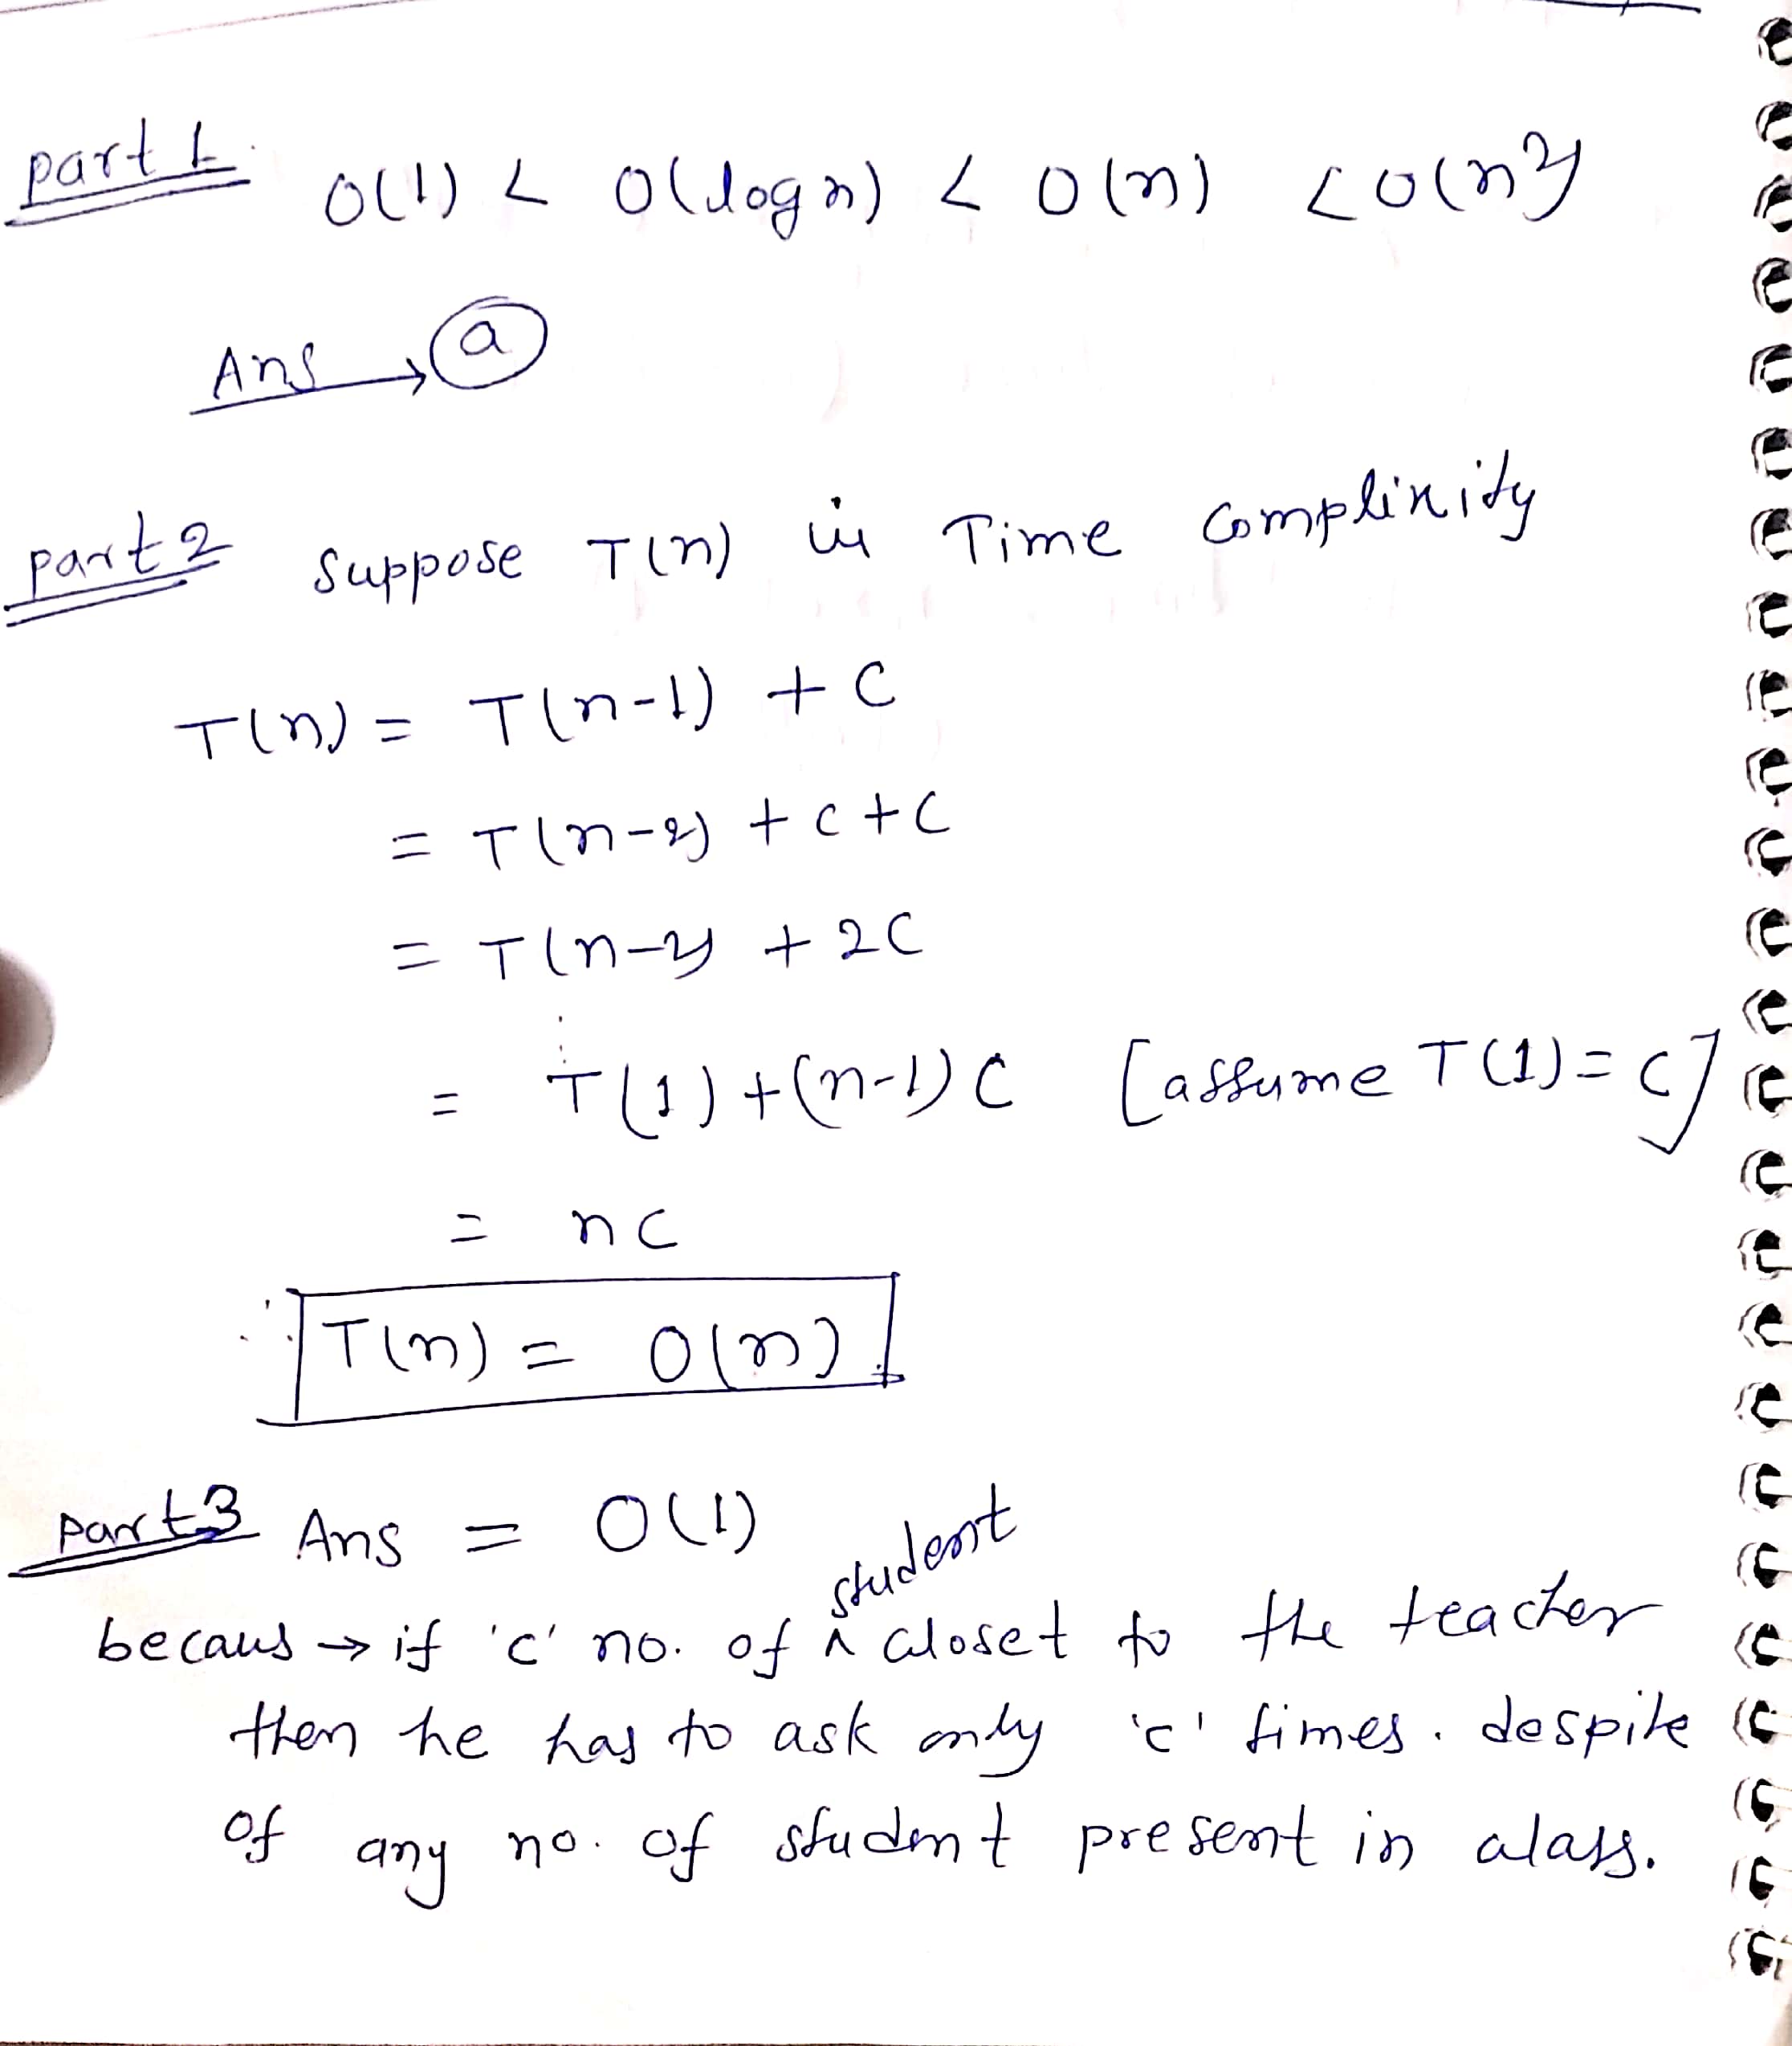 part 1. O(1) < O(logn) < O(n) < O(n²)
Ans → a
part 2 suppose T(n) is Time complixity
T(n) = T(n-1) + C
= T(n-2) + C + C
= T(n-2) + 2C
⋮
= T(1) + (n-1) C [assume T(1) = C]
= nc
∴ T(n) = O(n)
part 3 Ans = O(1)
student
becaus → if 'c' no. of ^ closet to the teacher
then he has to ask only 'c' times. despite
of any no. of student present in class.